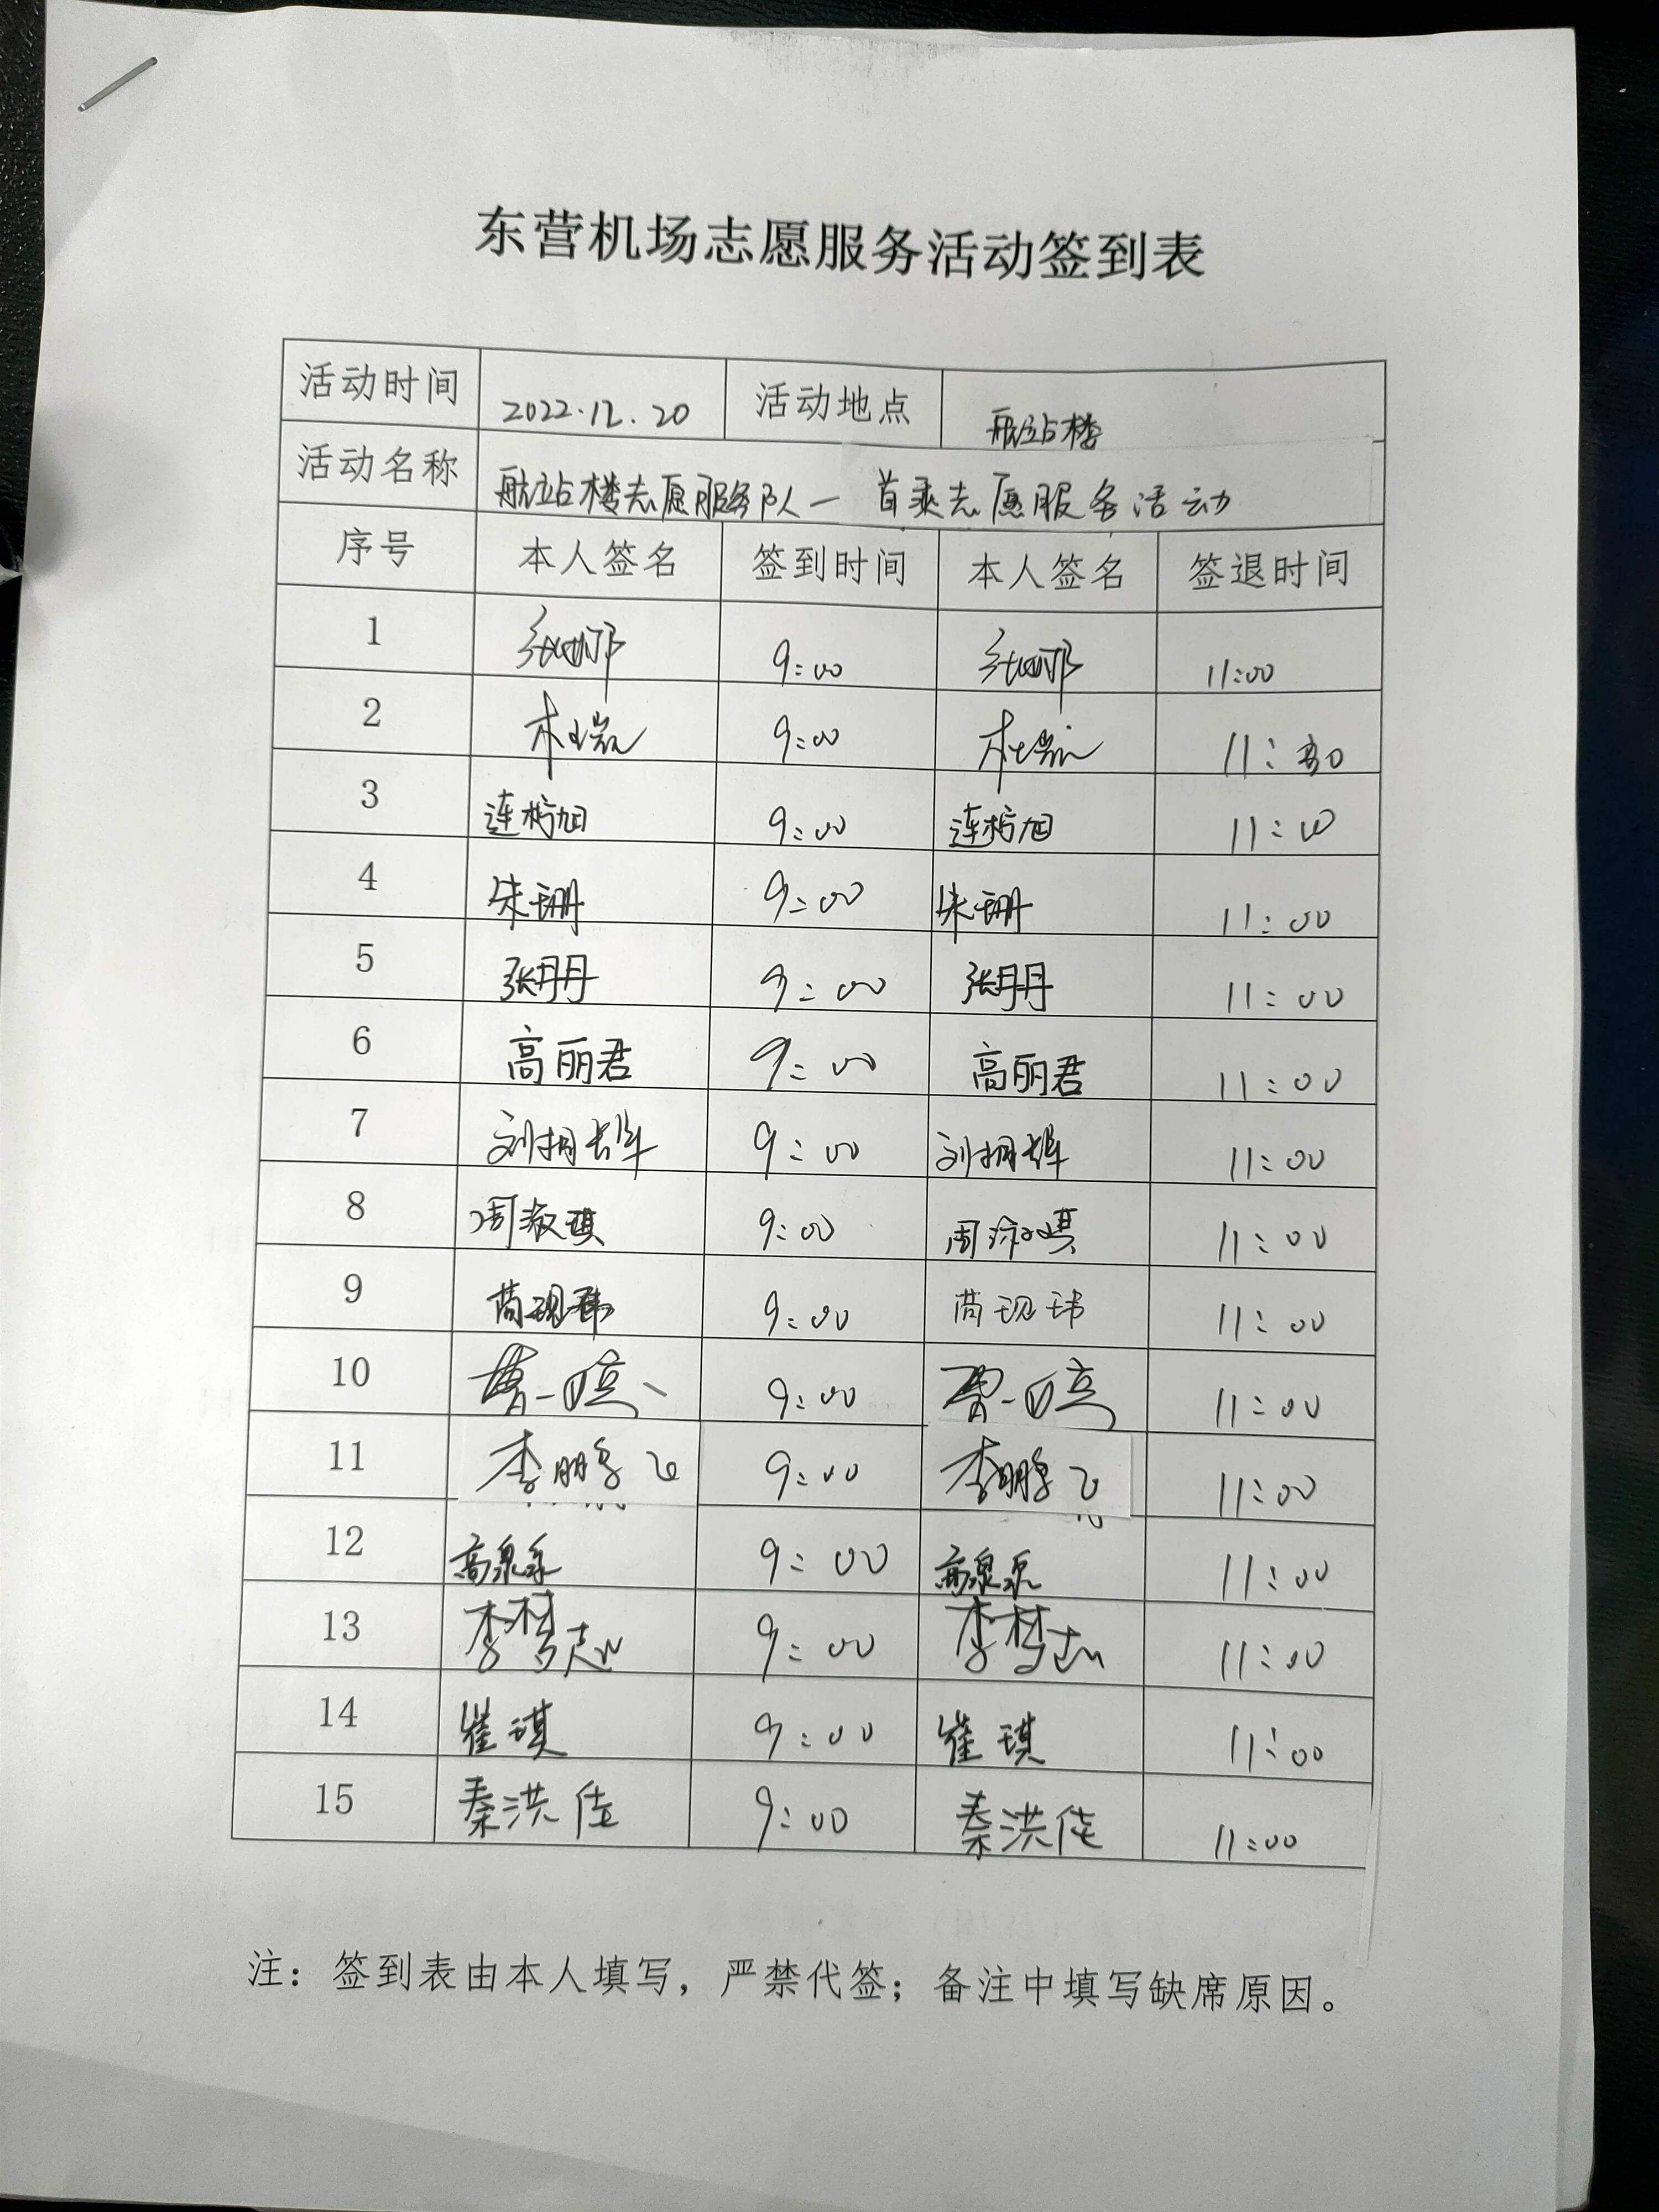 东营机场志愿服务活动签到表
活动时间 2022.12.20 活动地点 航站楼
活动名称 航站楼志愿服务队— 首乘志愿服务活动
序号 本人签名 签到时间 本人签名 签退时间
1 9:00 11:00
2 9:00 11:
3 9:00 11:00
4 朱珊 9:00 朱珊 11:00
5 张丹丹 9:00 张丹丹 11:00
6 高丽君 9:00 高丽君 11:00
7 9:00 11:00
8 9:00 11:00
9 9:00 11:00
10 9:00 11:00
11 李鹏飞 9:00 李鹏飞 11:00
12 9:00 11:00
13 9:00 11:00
14 崔琪 9:00 崔琪 11:00
15 秦洪佳 9:00 秦洪佳 11:00
注：签到表由本人填写，严禁代签；备注中填写缺席原因。